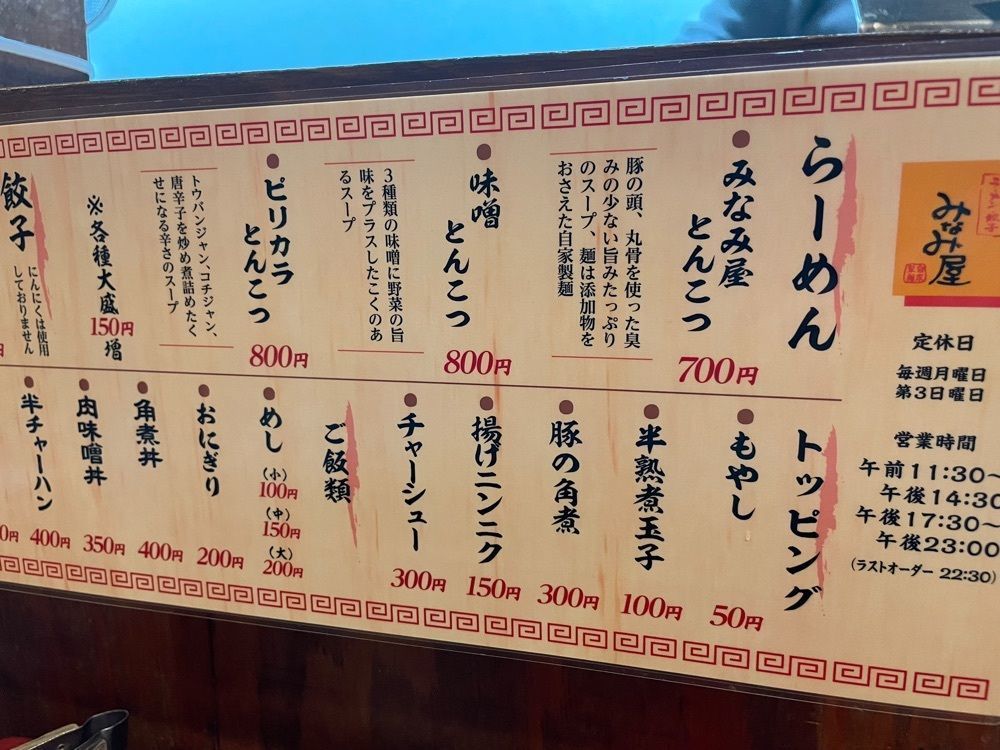 みなみ屋
定休日
毎週月曜日
第3日曜日
営業時間
午前11:30~
午後14:30
午後17:30~
午後23:00
(ラストオーダー 22:30)
らーめん
みなみ屋
とんこつ
700円
豚の頭、丸骨を使った臭
みの少ない旨みたっぷり
のスープ、麺は添加物を
おさえた自家製麺
味噌
とんこつ
800円
3種類の味噌に野菜の旨
味をプラスしたこくのあ
るスープ
ピリカラ
とんこつ
800円
トウバンジャン、コチジャン、
唐辛子を炒め煮詰めたく
せになる辛さのスープ
※各種大盛
150円
増
餃子
にんにくは使用
しておりません
円
トッピング
もやし
50円
半熟煮玉子
100円
豚の角煮
300円
揚げニンニク
150円
チャーシュー
300円
ご飯類
めし
(小)
100円
(中)
150円
(大)
200円
おにぎり
200円
角煮丼
400円
肉味噌丼
350円
半チャーハン
400円
0円